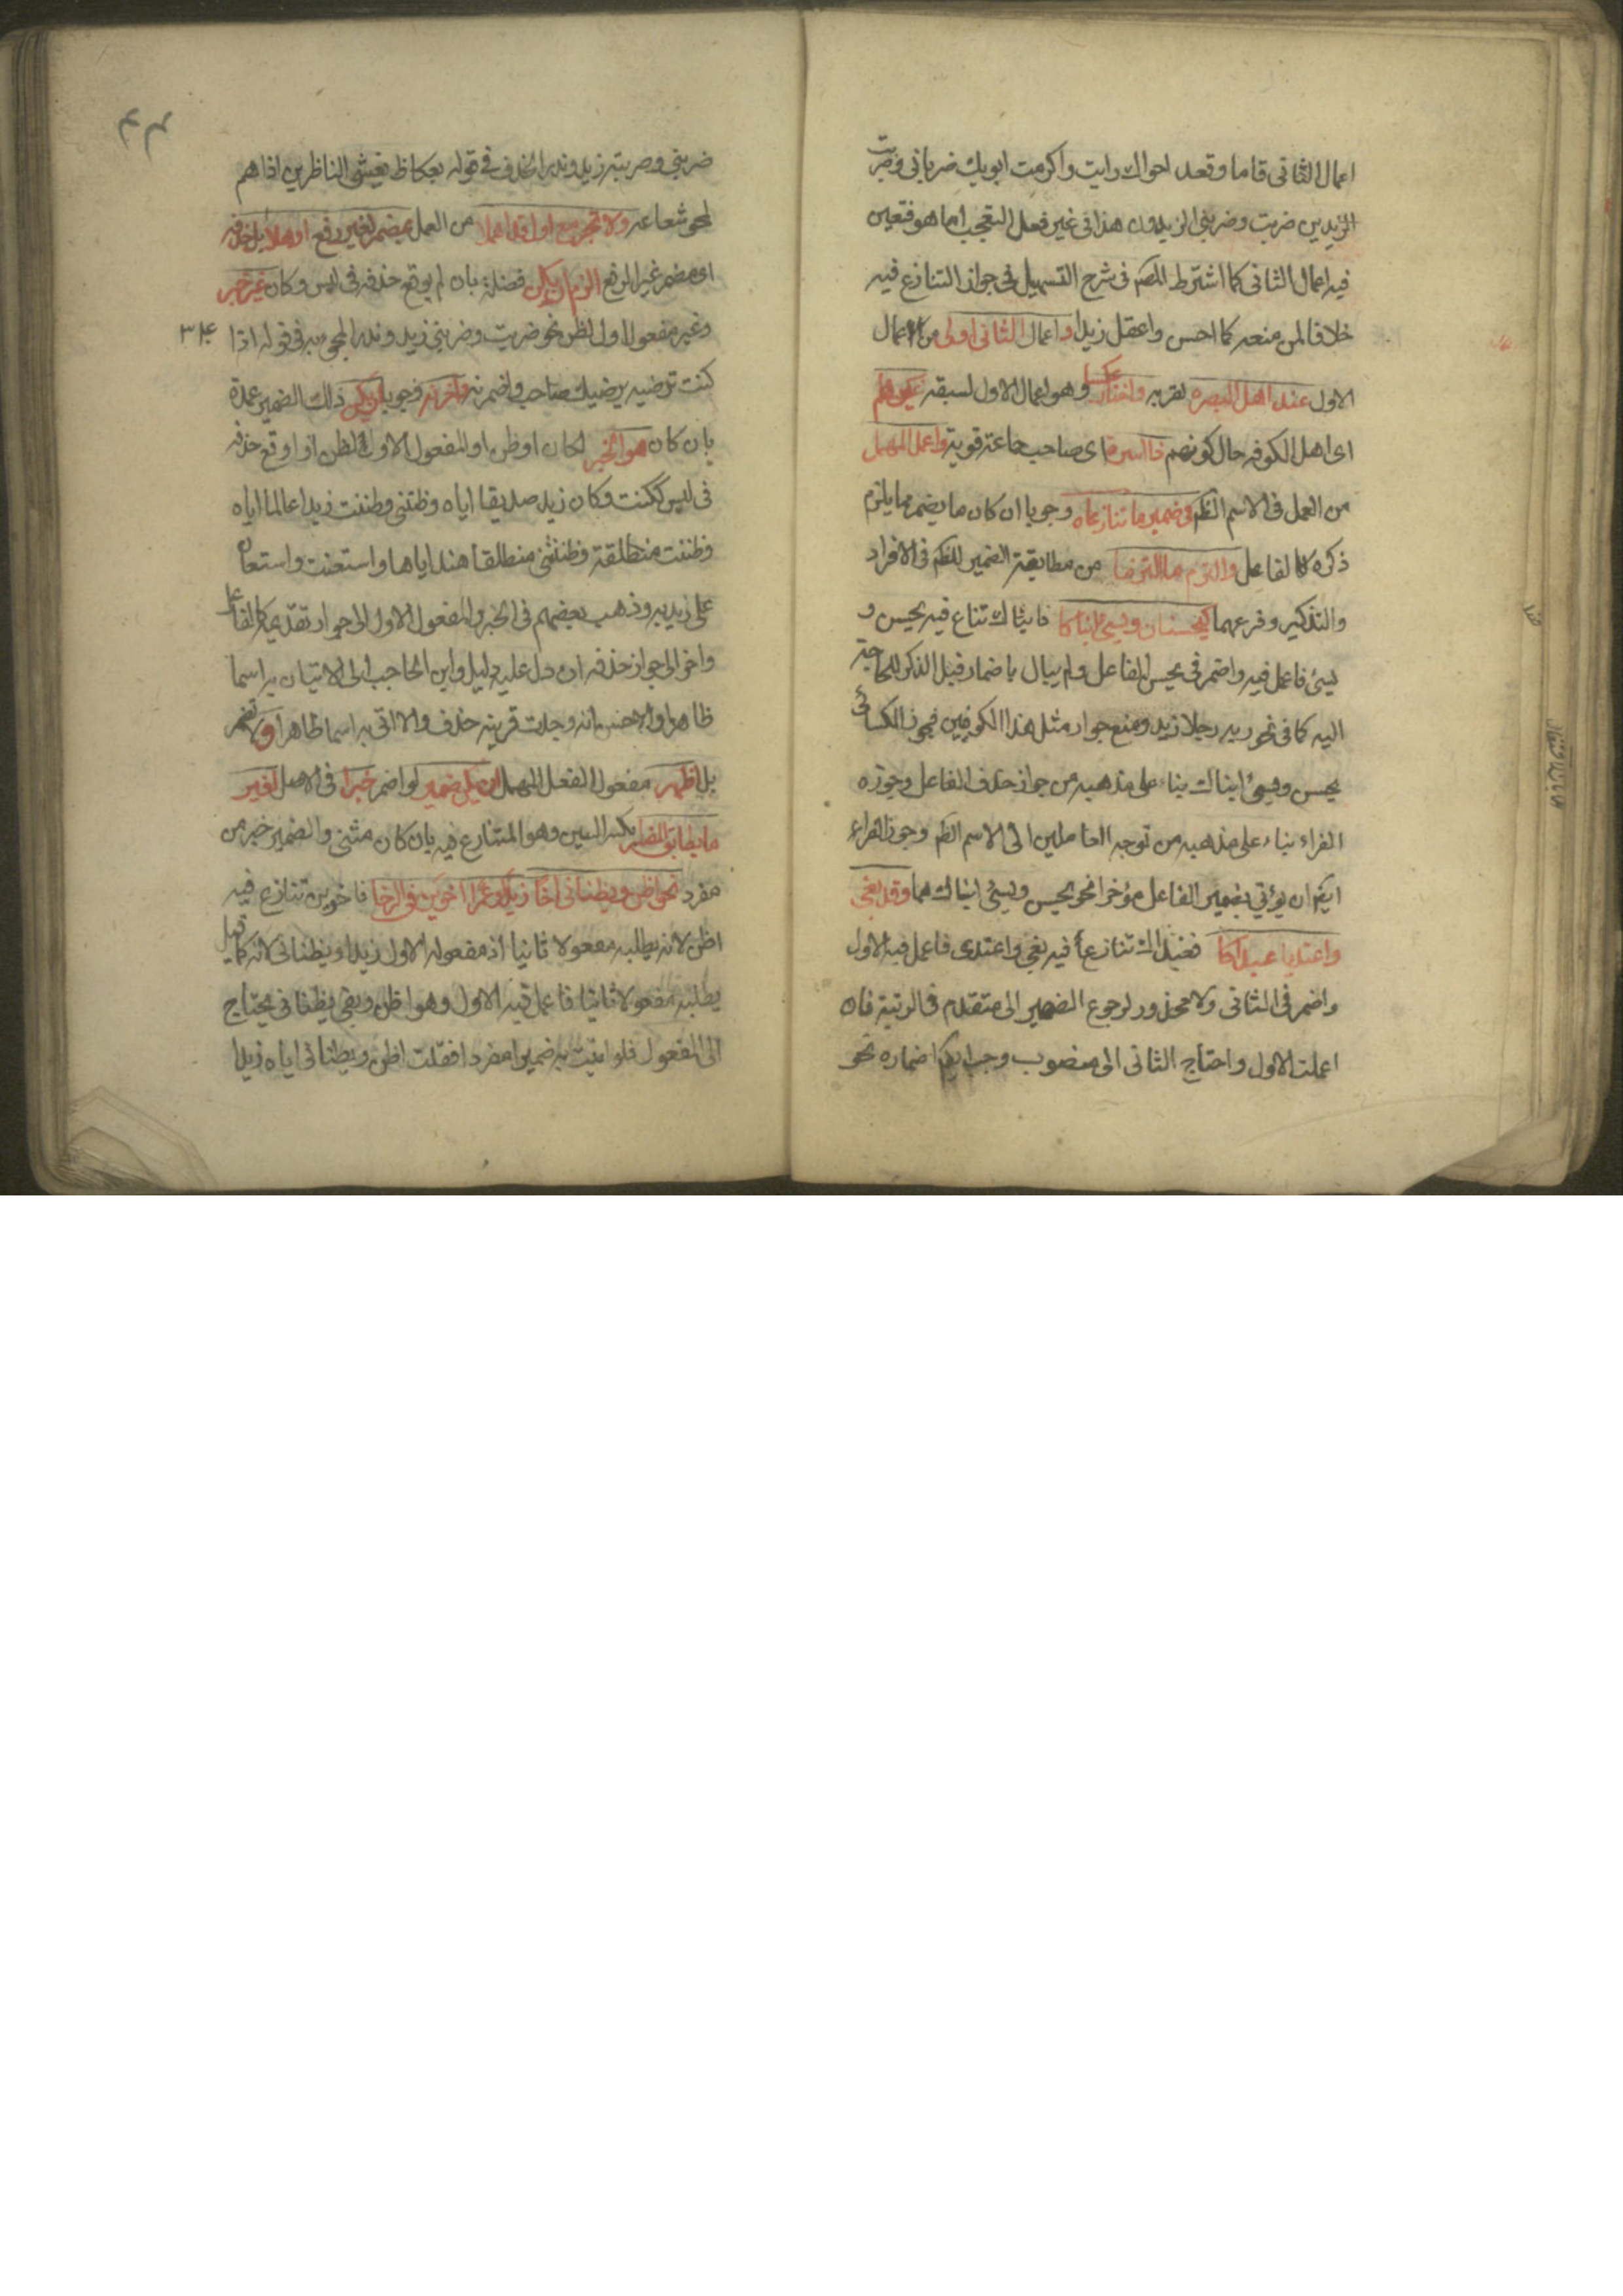 اعمال الثانى قاما وقعد اخواك ورايت واكرمت ابويك وضربانى وضربت
الزيدين وضربت وضربنى الزيدون هذا فى غير فعل التعجب اما هو فتعين
فيه اعمال الثانى كما اشترط المصم فى شرح التسهيل فى جواز التنازع فيه
خلافا لمن منعه كما احسن واعقل زيدا واعمال الثانى اولى من اعمال
الاول عند اهل البصره لقربه واختار عكسا وهو اعمال الاول لسبقه غيرهم
اى اهل الكوفه حال كونهم ذا اسره اى صاحب جماعة قوية واعمل المهمل
من العمل فى الاسم الظم فى ضمير ما تنازعاه وجوبا ان كان ما يضمر مما يلزم
ذكره كالفاعل والتزم ما التزما من مطابقة الضمير للظم فى الافراد
والتذكير وفرعهما كيحسنان ويسئ ابناكا فابناك تنازع فيه يحسن و
يسئ فاعمل فيه واضمر فى يحسن الفاعل ولم يبال باضمار قبل الذكر للحاجة
اليه كما فى نحو ربه رجلا زيد ومنع جواز مثل هذا الكوفيين فجوز الكسائى
يحسن ويسئ ابناك بناء على مذهبه من جواز حذف الفاعل وجوزه
الفراء بناء على مذهبه من توجه العاملين الى الاسم الظم وجوز الفراء
ايضا ان يؤتى بضمير الفاعل مؤخرا نحو يحسن ويسئ ابناك هما وقد بغى
واعتديا عبداكا فعبداك تنازع فيه بغى واعتدى فاعمل فيه الاول
واضمر فى الثانى ولا محذور لرجوع الضمير الى متقدم فى الرتبة فان
اعملت الاول واحتاج الثانى الى منصوب وجب ايضا اضماره نحو
ضربنى وضربته زيد وندر الحذف فى قوله بعكاظ يعشى الناظرين اذا هم
لمحو شعاعه ولا تجئ مع اول قد اهملا من العمل بمضمر لغير رفع اوهلا بل حذفه
اى مضمر غير الرفع الزم ان يكن فضلة بان لم يوقع حذفه فى لبس وكان غير خبر
وغير مفعول اول لظن نحو ضربت وضربنى زيد وندر المجئ به فى قوله اذا
٣٤
كنت ترضيه ويرضيك صاحب واضمرنه واخرنه وجوبا ان يكن ذلك الضمير عمدة
بان كان هو الخبر لكان او ظن او المفعول الاول لظن او اوقع حذفه
فى لبس ككنت وكان زيد صديقا اياه وظننى وظننت زيدا عالما اياه
وظننت منطلقة وظننتنى منطلقا هند اياها واستعنت واستعان
على زيد به وذهب بعضهم فى الخبر والمفعول الاول الى جواز تقديمه كالفاعل
واخر الى جواز حذفه ان دل عليه دليل وابن الحاجب الى الاتيان به اسما
ظاهرا والاحسن انه ان وجدت قرينة حذف والا اتى به اسما ظاهرا ولا تضمر
بل اظهر مفعول الفعل المهمل ان يكن ضمير لو اضمر خبرا فى الاصل لغير
ما يطابق المفسر بكسر السين وهو المتنازع فيه بان كان مثنى والضمير خبر من
مفرد نحو اظن ويظنانى اخا زيدا وعمرا اخوين فى الرخا فاخوين تنازع فيه
اظن لانه يطلبه مفعولا ثانيا اذ مفعوله الاول زيدا ويظنانى لانه كما قيل
يطلبه مفعولا ثانيا فاعمل فيه الاول وهو اظن وبقى يظنانى يحتاج
الى المفعول فلو اتيت به ضميرا مفردا فقلت اظن ويظنانى اياه زيدا